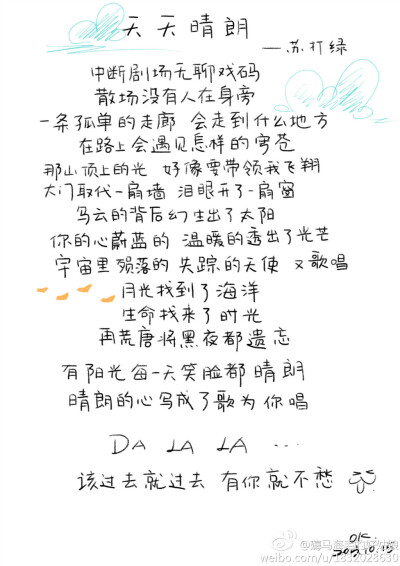 天天晴朗
—苏打绿
中断剧场无聊戏码
散场没有人在身旁
一条孤单的走廊 会走到什么地方
在路上会遇见怎样的穹苍
那山顶上的光 好像要带领我飞翔
大门取代一扇墙 泪眼开了一扇窗
乌云的背后幻生出了太阳
你的心蔚蓝的 温暖的透出了光芒
宇宙里殒落的 失踪的天使 又歌唱
月光找到了海洋
生命找来了时光
再荒唐将黑夜都遗忘
有阳光每一天笑脸都晴朗
晴朗的心写成了歌为你唱
DA LA LA ...
该过去就过去 有你就不愁
OK.
weibo.com/u/1832028630